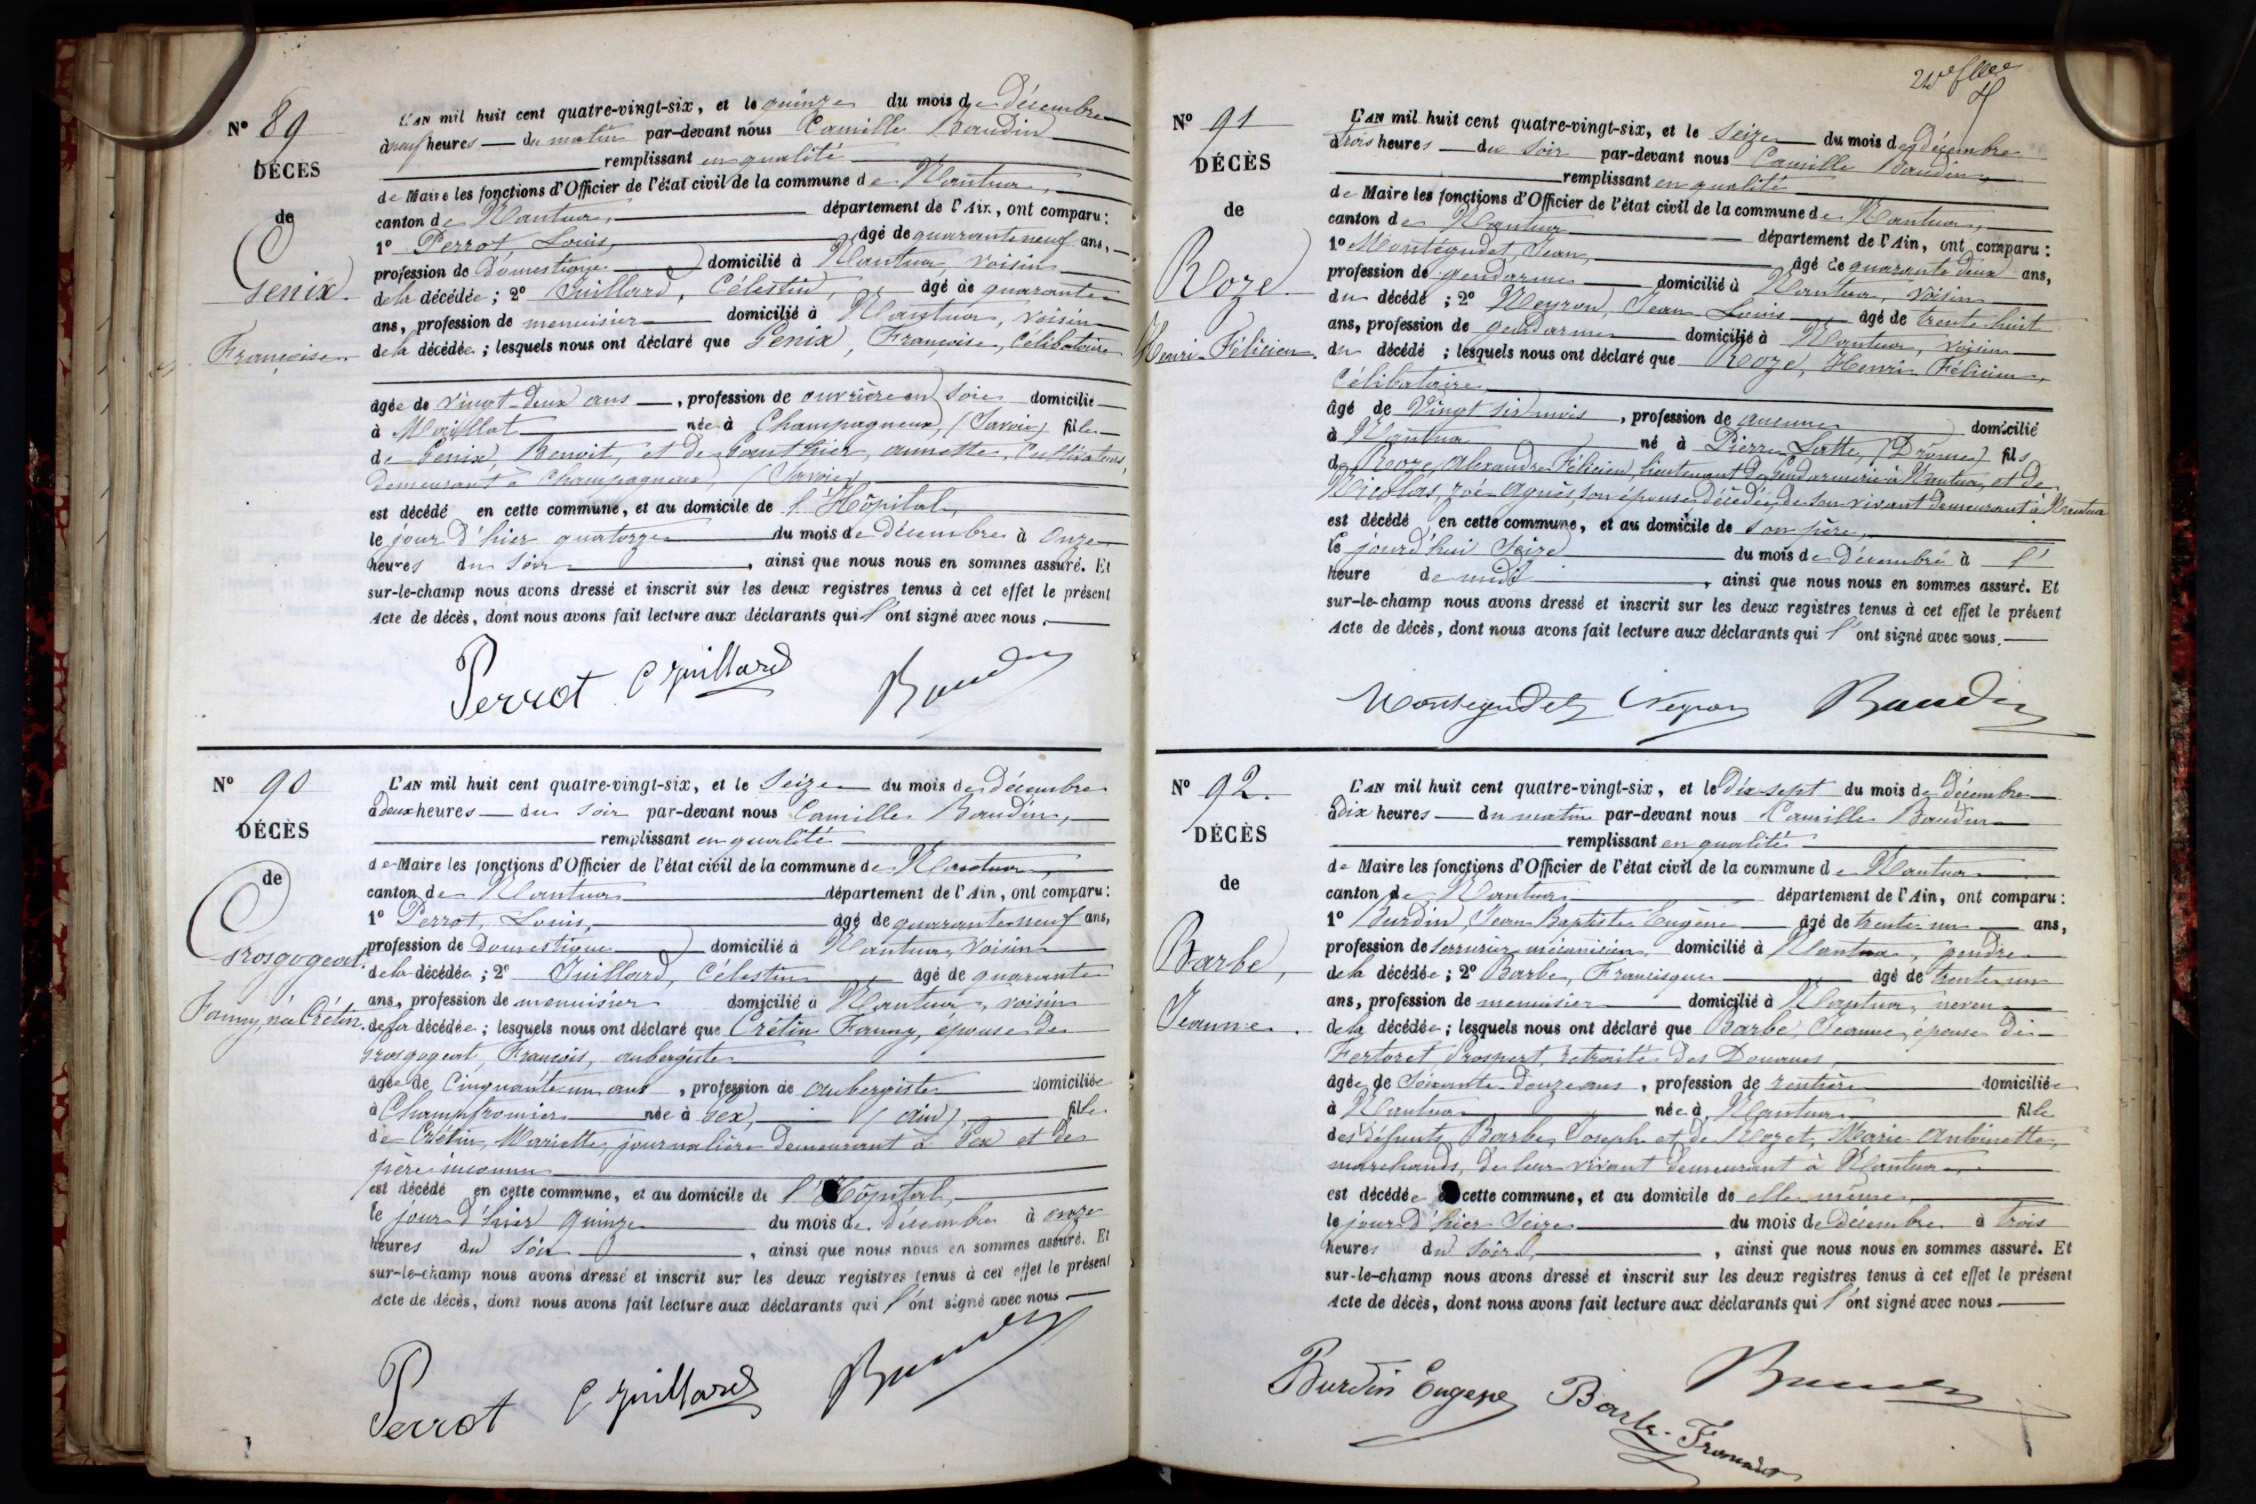 N° 89
DÉCÈS
de
Genix
Françoise
L'AN mil huit cent quatre-vingt-six, et le quinze du mois de décembre
à neuf heures du matin par-devant nous Camille Baudin
remplissant en qualité
de Maire les fonctions d'Officier de l'état civil de la commune de Nantua,
canton de Nantua, département de l'Ain, ont comparu :
1° Perrot Louis, âgé de quarante neuf ans,
profession de Domestique domicilié à Nantua, voisin
de la décédée ; 2° Juillard, Célestin, âgé de quarante
ans, profession de menuisier domicilié à Nantua, voisin
de la décédée ; lesquels nous ont déclaré que Genix, Françoise, Célibataire
âgée de vingt-deux ans, profession de ouvrière en soie domicilié
à Maillat née à Champagneux, (Savoie) fille
de Genix Benoit, et de Gauthier, annette, Cultivateurs,
demeurant à Champagneux, (Savoie)
est décédé en cette commune, et au domicile de l'Hôpital,
le jour d'hier quatorze du mois de décembre à onze
heures du soir, ainsi que nous nous en sommes assuré. Et
sur-le-champ nous avons dressé et inscrit sur les deux registres tenus à cet effet le présent
Acte de décès, dont nous avons fait lecture aux déclarants qui l'ont signé avec nous.
Perrot C Juillard Baudin
N° 90
DÉCÈS
de
Grosgogeat
Fanny, née Crétin
L'AN mil huit cent quatre-vingt-six, et le seize du mois de décembre
à deux heures du soir par-devant nous Camille Baudin,
remplissant en qualité
de Maire les fonctions d'Officier de l'état civil de la commune de Nantua,
canton de Nantua département de l'Ain, ont comparu :
1° Perrot, Louis, âgé de quarante neuf ans,
profession de Domestique domicilié à Nantua, voisin
de la décédée ; 2° Juillard, Célestin âgé de quarante
ans, profession de menuisier domicilié à Nantua, voisin
de la décédée ; lesquels nous ont déclaré que Crétin Fanny, épouse de
Grosgogeat, François, aubergiste
âgée de Cinquante un ans, profession de aubergiste domiciliée
à Champfromier née à Gex, (ain), fille
de Crétin, Mariette, journalière demeurant à Gex et de
père inconnu
est décédé en cette commune, et au domicile de l'Hôpital,
le jour d'hier quinze du mois de décembre à onze
heures du soir, ainsi que nous nous en sommes assuré. Et
sur-le-champ nous avons dressé et inscrit sur les deux registres tenus à cet effet le présent
Acte de décès, dont nous avons fait lecture aux déclarants qui l'ont signé avec nous
Perrot C Juillard Baudin
N° 91
DÉCÈS
de
Roze
Henri Félicien
L'AN mil huit cent quatre-vingt-six, et le seize du mois de décembre
à trois heures du soir par-devant nous Camille Baudin,
remplissant en qualité
de Maire les fonctions d'Officier de l'état civil de la commune de Nantua,
canton de Nantua département de l'Ain, ont comparu :
1° Montégudet, Jean, âgé de quarante deux ans,
profession de gendarme domicilié à Nantua, voisin
du décédé ; 2° Neyron, Jean Louis âgé de trente huit
ans, profession de gendarme domicilié à Nantua, voisin
du décédé ; lesquels nous ont déclaré que Roze, Henri Félicien,
Célibataire
âgé de Vingt six mois, profession de aucune domicilié
à Nantua né à Pierre Latte, (Drôme) fils
de Roze, Alexandre Félicien, lieutenant de Gendarmerie à Nantua, et de
Nicolas, Zoé Agnès, son épouse décédée, de son vivant demeurant à Nantua
est décédé en cette commune, et au domicile de son père,
le jourd'hui seize du mois de décembre à l'
heure de midi, ainsi que nous nous en sommes assuré. Et
sur-le-champ nous avons dressé et inscrit sur les deux registres tenus à cet effet le présent
Acte de décès, dont nous avons fait lecture aux déclarants qui l'ont signé avec nous.
Montegudet Neyron Baudin
N° 92
DÉCÈS
de
Barbe,
Jeanne
L'AN mil huit cent quatre-vingt-six, et le dix-sept du mois de décembre
à dix heures du matin par-devant nous Camille Baudin
remplissant en qualité
de Maire les fonctions d'Officier de l'état civil de la commune de Nantua
canton de Nantua département de l'Ain, ont comparu :
1° Burdin, Jean Baptiste Eugène âgé de trente un ans,
profession de serrurier mécanicien domicilié à Nantua, gendre
de la décédée ; 2° Barbe, Francisque âgé de trente un
ans, profession de menuisier domicilié à Nantua, neveu
de la décédée ; lesquels nous ont déclaré que Barbe, Jeanne, épouse de
Fertoret Prospert, retraité des Douanes
âgée de soixante douze ans, profession de rentière domiciliée
à Nantua née à Nantua fille
des défunts Barbe, Joseph et de Mozet, Marie Antoinette,
marchands, de leur vivant demeurant à Nantua,
est décédée en cette commune, et au domicile de elle même
le jour d'hier seize du mois de décembre à trois
heures du soir, ainsi que nous nous en sommes assuré. Et
sur-le-champ nous avons dressé et inscrit sur les deux registres tenus à cet effet le présent
Acte de décès, dont nous avons fait lecture aux déclarants qui l'ont signé avec nous.
Burdin Eugène Barbe Baudin